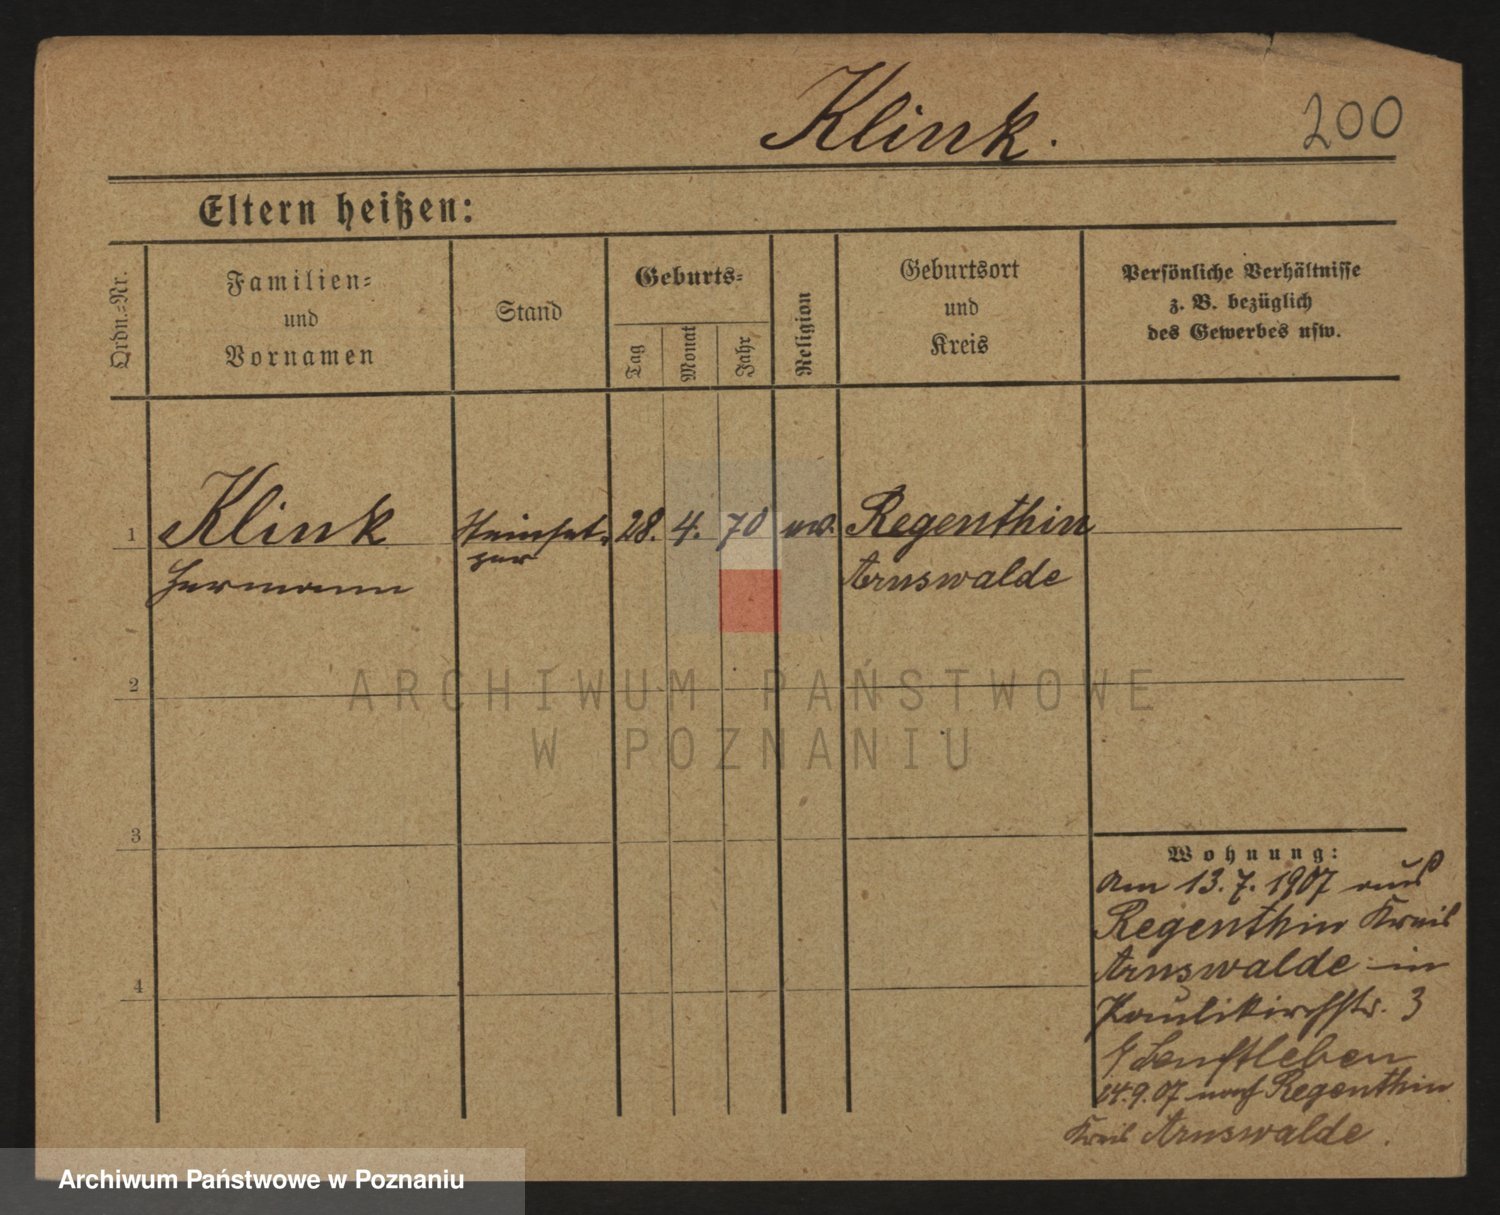 Klink.
200
Eltern heißen:
Ordn.=Nr.
Familien=
und
Vornamen
Stand
Geburts=
Tag
Monat
Jahr
Religion
Geburtsort
und
Kreis
Persönliche Verhältnisse
z. B. bezüglich
des Gewerbes usw.
1 Klink Steinset= 28. 4. 70 ev. Regenthin
Hermann zer Arnswalde
1
2
3
4
Wohnung:
Am 13.7.1907 aus
Regenthin Kreis
Arnswalde in
Paulikirchstr. 3
14.9.07 nach Regenthin
Kreis Arnswalde.
ARCHIWUM PAŃSTWOWE
W POZNANIU
Archiwum Państwowe w Poznaniu